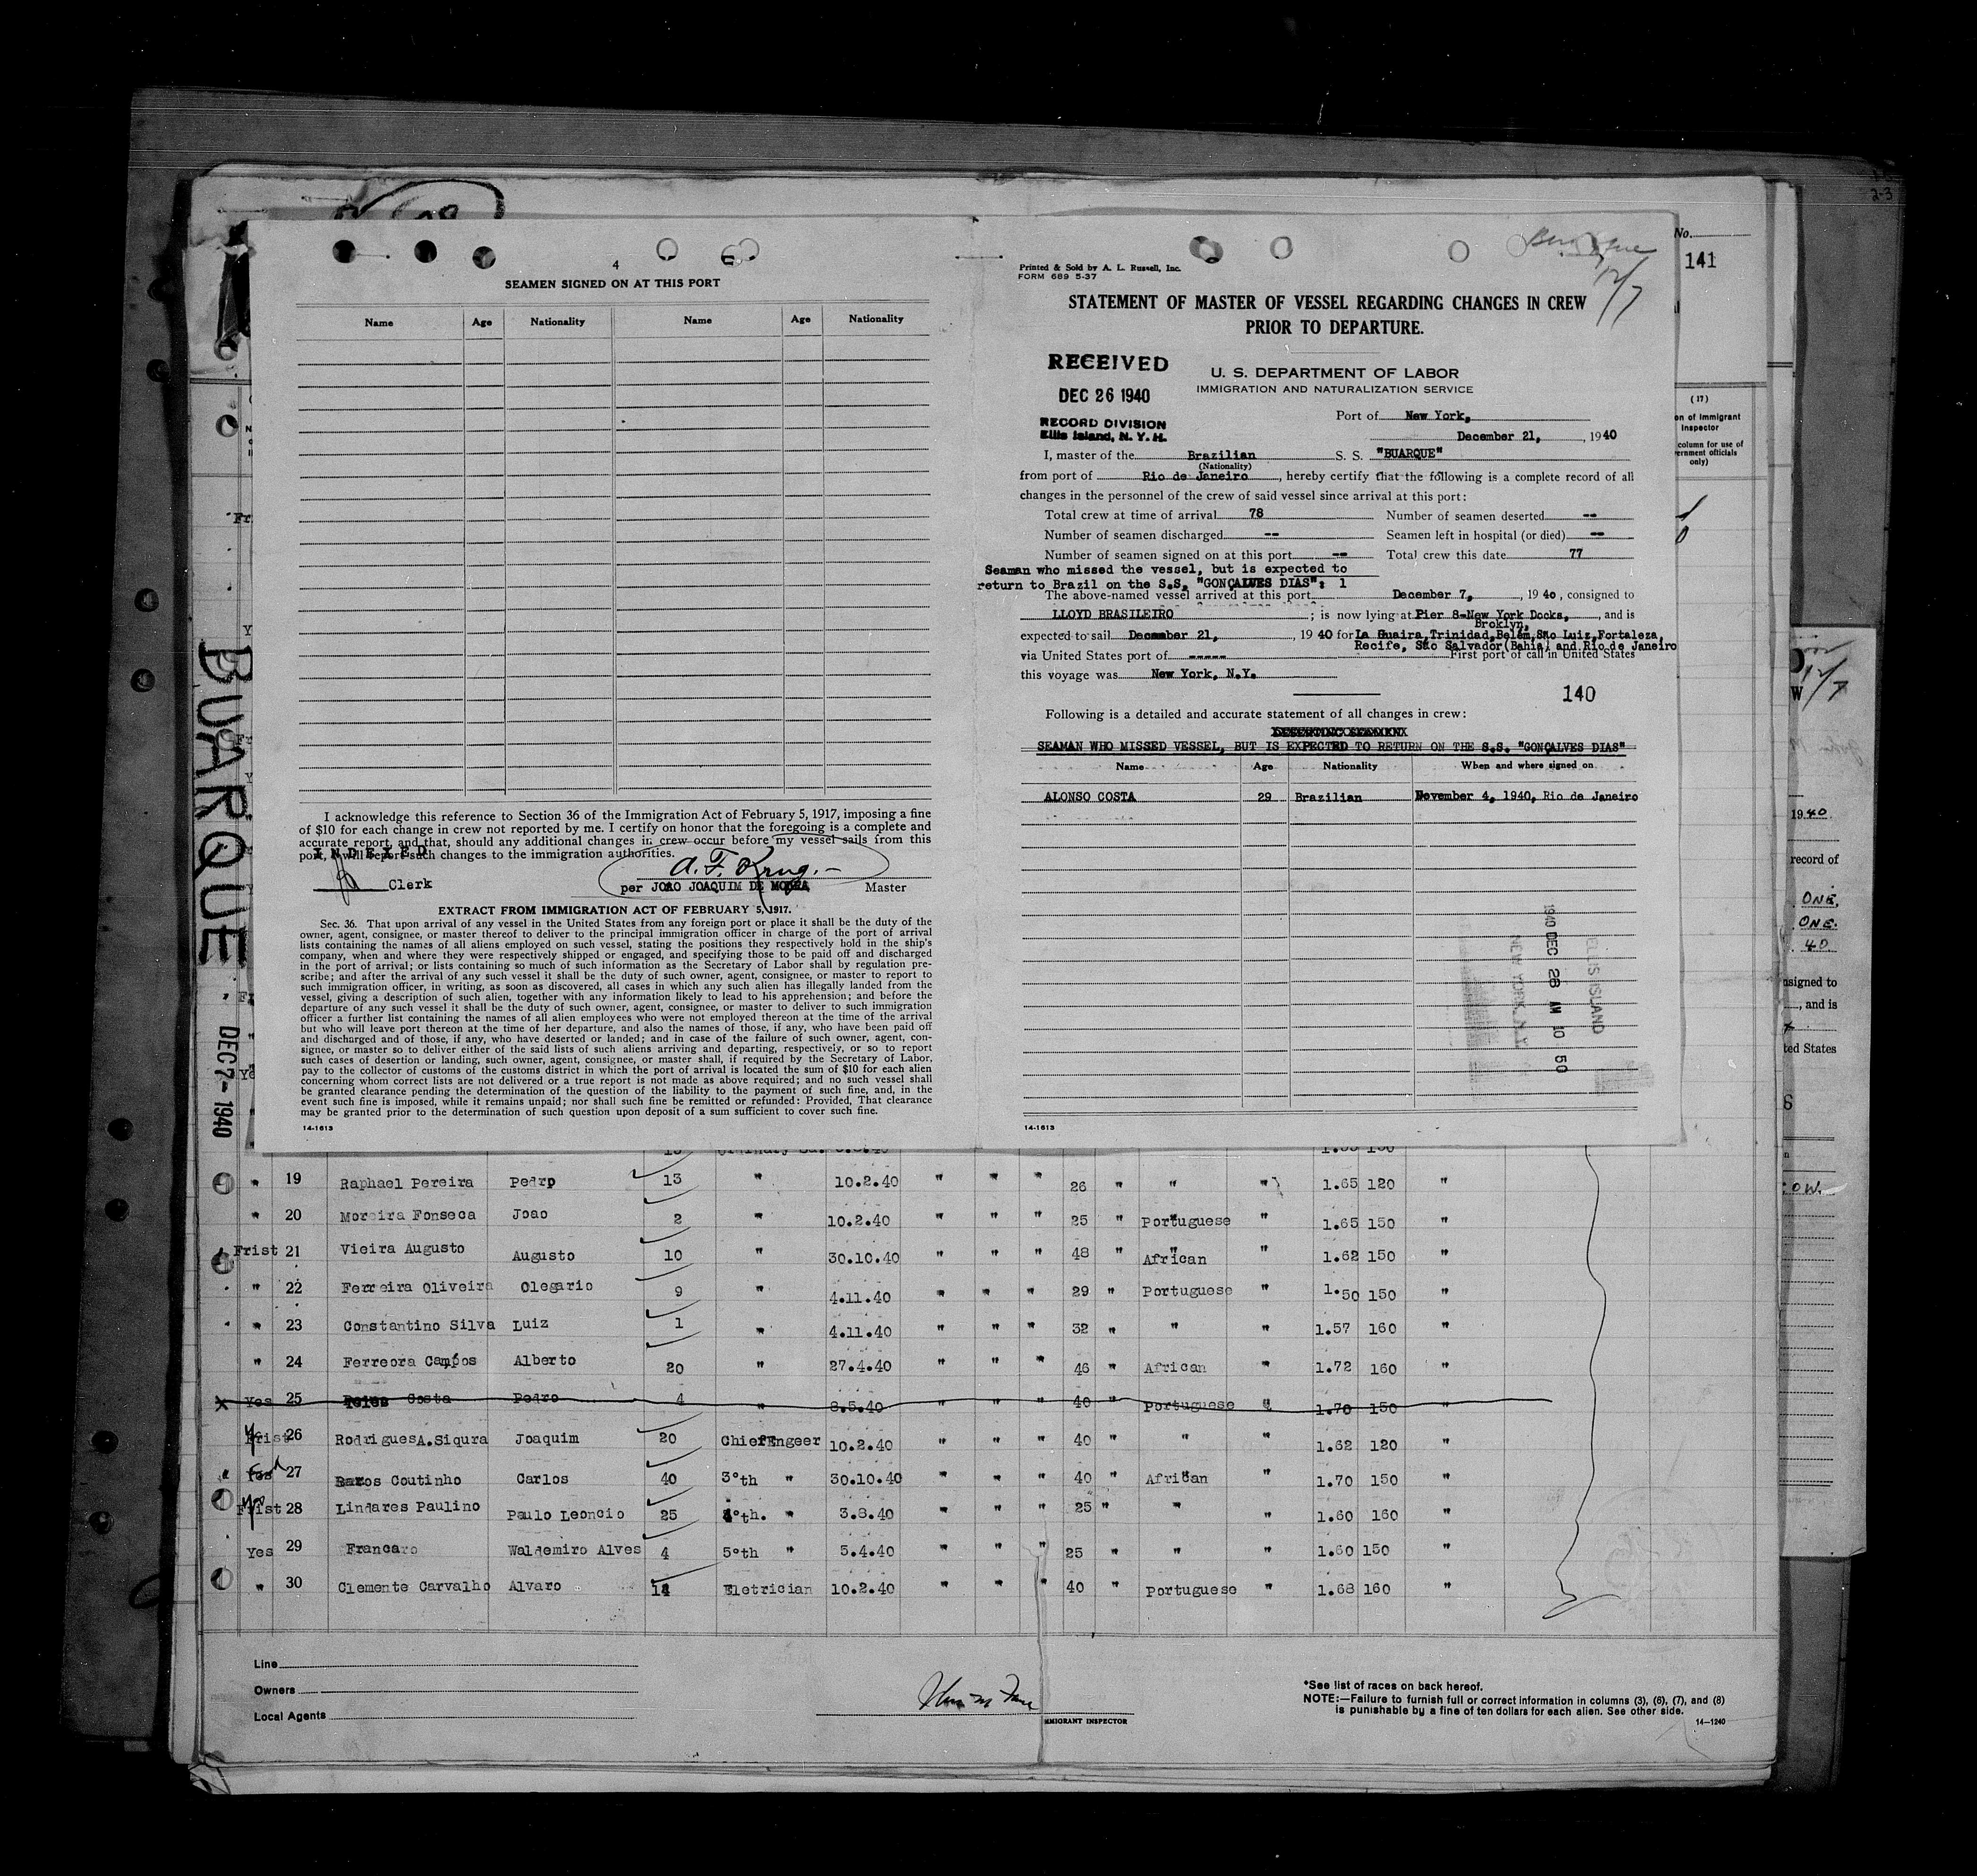 4
SEAMEN SIGNED ON AT THIS PORT
Name Age Nationality Name Age Nationality
I acknowledge this reference to Section 36 of the Immigration Act of February 5, 1917, imposing a fine
of $10 for each change in crew not reported by me. I certify on honor that the foregoing is a complete and
accurate report, and that, should any additional changes in crew occur before my vessel sails from this
port, I will report such changes to the immigration authorities.
INDEXED
A. F. Krug.-
Clerk
per JOAO JOAQUIM DE MOURA Master
EXTRACT FROM IMMIGRATION ACT OF FEBRUARY 5, 1917.
Sec. 36. That upon arrival of any vessel in the United States from any foreign port or place it shall be the duty of the
owner, agent, consignee, or master thereof to deliver to the principal immigration officer in charge of the port of arrival
lists containing the names of all aliens employed on such vessel, stating the positions they respectively hold in the ship's
company, when and where they were respectively shipped or engaged, and specifying those to be paid off and discharged
in the port of arrival; or lists containing so much of such information as the Secretary of Labor shall by regulation pre-
scribe; and after the arrival of any such vessel it shall be the duty of such owner, agent, consignee, or master to report to
such immigration officer, in writing, as soon as discovered, all cases in which any such alien has illegally landed from the
vessel, giving a description of such alien, together with any information likely to lead to his apprehension; and before the
departure of any such vessel it shall be the duty of such owner, agent, consignee, or master to deliver to such immigration
officer a further list containing the names of all alien employees who were not employed thereon at the time of the arrival
but who will leave port thereon at the time of her departure, and also the names of those, if any, who have been paid off
and discharged and of those, if any, who have deserted or landed; and in case of the failure of such owner, agent, con-
signee, or master so to deliver either of the said lists of such aliens arriving and departing, respectively, or so to report
such cases of desertion or landing, such owner, agent, consignee, or master shall, if required by the Secretary of Labor,
pay to the collector of customs of the customs district in which the port of arrival is located the sum of $10 for each alien
concerning whom correct lists are not delivered or a true report is not made as above required; and no such vessel shall
be granted clearance pending the determination of the question of the liability to the payment of such fine, and, in the
event such fine is imposed, while it remains unpaid; nor shall such fine be remitted or refunded: Provided, That clearance
may be granted prior to the determination of such question upon deposit of a sum sufficient to cover such fine.
14-1613
Printed & Sold by A. L. Russell, Inc.
FORM 689 5-37
12/7
STATEMENT OF MASTER OF VESSEL REGARDING CHANGES IN CREW
PRIOR TO DEPARTURE.
RECEIVED
DEC 26 1940
RECORD DIVISION
Ellis Island, N. Y. H.
U. S. DEPARTMENT OF LABOR
IMMIGRATION AND NATURALIZATION SERVICE
Port of New York,
December 21, , 1940
I, master of the Brazilian S. S. "BUARQUE"
(Nationality)
from port of Rio de Janeiro, hereby certify that the following is a complete record of all
changes in the personnel of the crew of said vessel since arrival at this port:
Total crew at time of arrival 78 Number of seamen deserted --
Number of seamen discharged -- Seamen left in hospital (or died) --
Number of seamen signed on at this port -- Total crew this date 77
Seaman who missed the vessel, but is expected to
return to Brazil on the S.S. "GONÇALVES DIAS": 1
The above-named vessel arrived at this port December 7, , 1940, consigned to
LLOYD BRASILEIRO ; is now lying at Pier 8-New York Docks, , and is
Broklyn,
expected to sail December 21, , 1940 for La Guaira,Trinidad,Belém,São Luiz,Fortaleza,
Recife, São Salvador(Bahia) and Rio de Janeiro
via United States port of ----- First port of call in United States
this voyage was New York, N.Y.
140
Following is a detailed and accurate statement of all changes in crew:
SEAMAN WHO MISSED VESSEL, BUT IS EXPECTED TO RETURN ON THE S.S. "GONÇALVES DIAS"
Name Age Nationality When and where signed on
ALONSO COSTA 29 Brazilian November 4, 1940, Rio de Janeiro
ELLIS ISLAND
1940 DEC 28 AM 10 50
NEW YORK, N.Y.
14-1613
BUARQUE
DEC 7- 1940
No.
141
(17)
on of Immigrant
Inspector
column for use of
ernment officials
only)
12/7
W
1940
record of
ONE,
ONE.
40
signed to
, and is
ted States
OW.
2-3
" 19 Raphael Pereira Pedrp 13 " 10.2.40 " " " 26 " " " 1.65 120 "
" 20 Moreira Fonseca Joao 2 " 10.2.40 " " " 25 " Portuguese " 1.65 150 "
Frist 21 Vieira Augusto Augusto 10 " 30.10.40 " " " 48 " African " 1.62 150 "
" 22 Ferreira Oliveira Olegario 9 " 4.11.40 " " " 29 " Portuguese " 1.50 150 "
" 23 Constantino Silva Luiz 1 " 4.11.40 " " " 32 " " " 1.57 160 "
" 24 Ferreora Campos Alberto 20 " 27.4.40 " " " 46 " African " 1.72 160 "
x Yes 25 Costa Pedro 4 " 8.5.40 " " " 40 " Portuguese " 1.70 150 "
Frist 26 RodriguesA.Siqura Joaquim 20 ChiefEngeer 10.2.40 " " " 40 " " " 1.62 120 "
Yes 27 Baros Coutinho Carlos 40 3°th " 30.10.40 " " " 40 " African " 1.70 150 "
Frist 28 Lindares Paulino Paulo Leoncio 25 4°th. " 3.8.40 " " " 25 " " " 1.60 160 "
Yes 29 Francaro Waldemiro Alves 4 5°th " 5.4.40 " " " 25 " " " 1.60 150 "
" 30 Clemente Carvalho Alvaro 14 Eletrician 10.2.40 " " " 40 " Portuguese " 1.68 160 "
Line
Owners
Local Agents
IMMIGRANT INSPECTOR
*See list of races on back hereof.
NOTE:—Failure to furnish full or correct information in columns (3), (6), (7), and (8)
is punishable by a fine of ten dollars for each alien. See other side.
14-1240